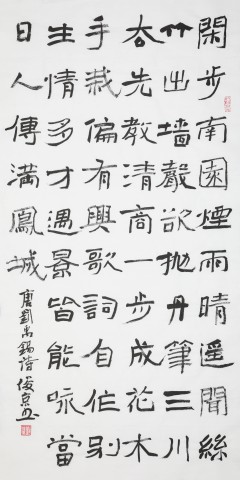 閑步南園煙雨晴遥聞絲
竹出墻聲欲抛丹筆三川
去先教清商一步成花木
手栽偏有興歌詞自作别
生情多才遇景皆能咏當
日人傳滿鳳城
唐劉禹錫詩俊京书